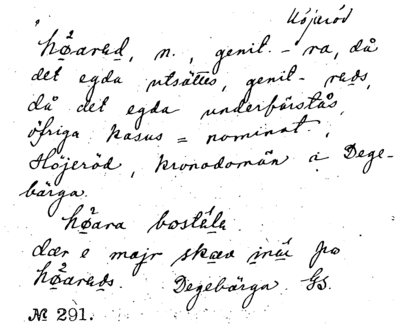 Höjeröd
hø²arɐd, n., genit. -ra, då
det egda utsättes, genit. -rɐds,
då det egda underförstås,
öfriga kasus = nominat.,
Höjeröd, kronodomän i Dege-
bärga.
hø²ara bostɛ́lɐ
dær e majr skæv inú po
hø²arɐds. Degebärga. GS.
№ 291.